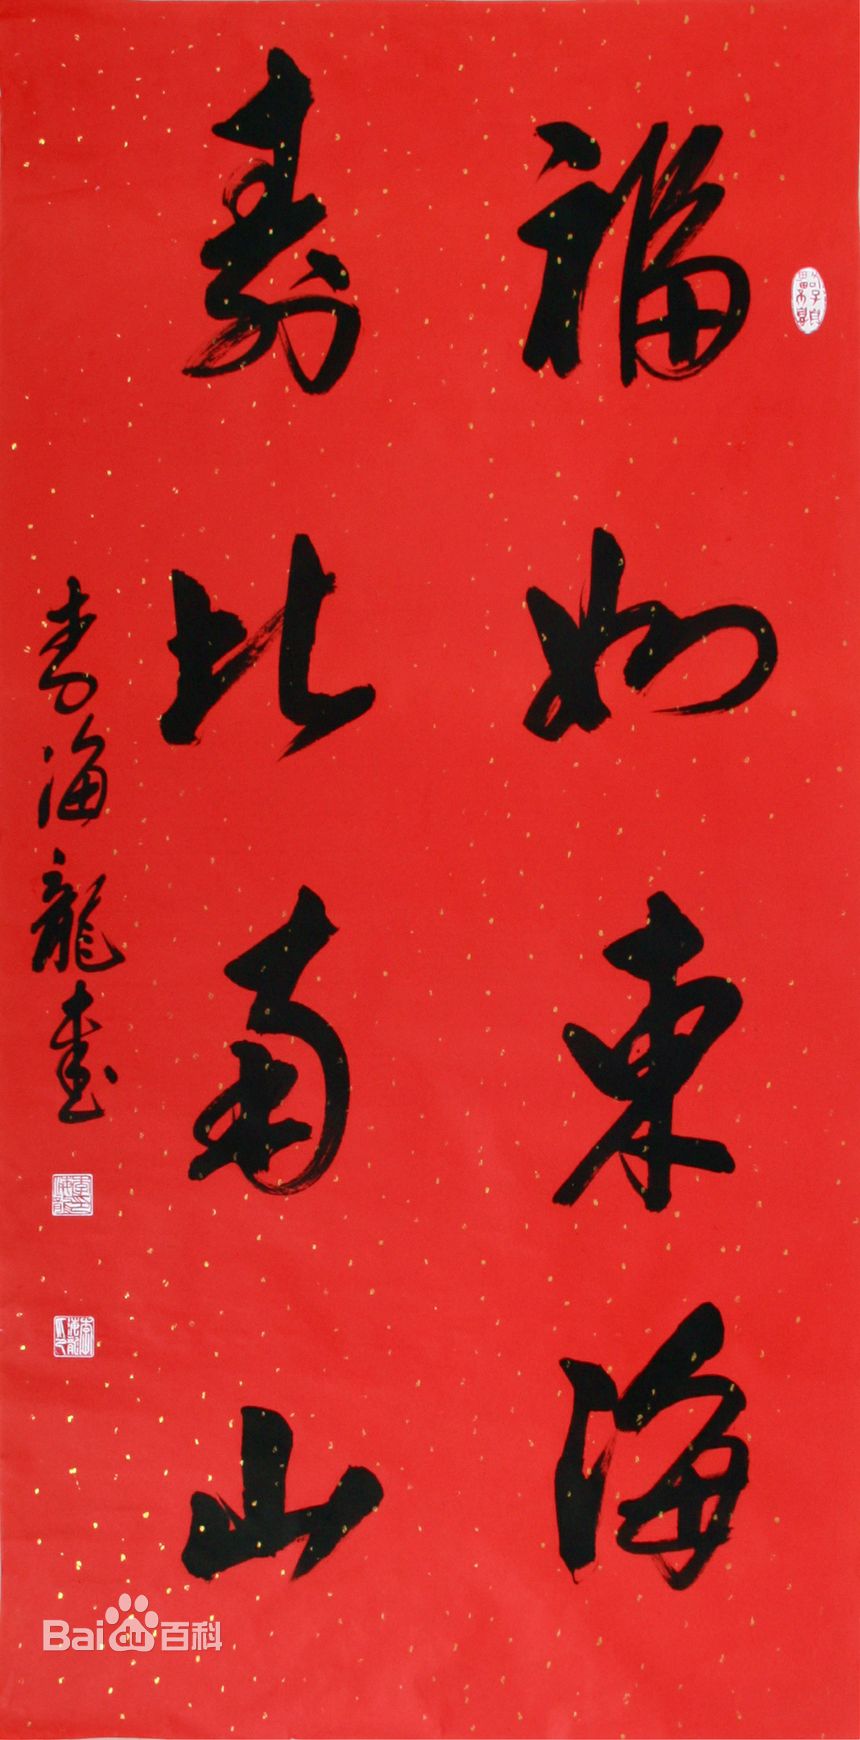 福如東海
壽比南山
李海龍書
Bai百科